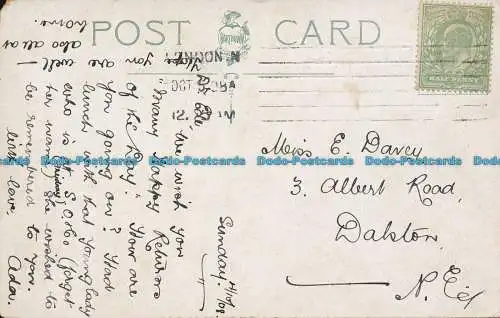 POST CARD
LONDON N
OCT
12.
HALF PENNY
Sunday. 4/10/08.
Dr Ede, we wish you
Many Happy Returns
of the day. How are
you going on? Had
lunch with that young lady
who is at
(forget
her name) she wished to
be remembered to you.
With love.
Ada.
Hope you are well –
also all at
home.
Miss E. Davey
3. Albert Road,
Dalston,
N.E.
Dodo-Postcards Dodo-Postcards Dodo-Postcards Dodo-Postcards Dodo-Postcards